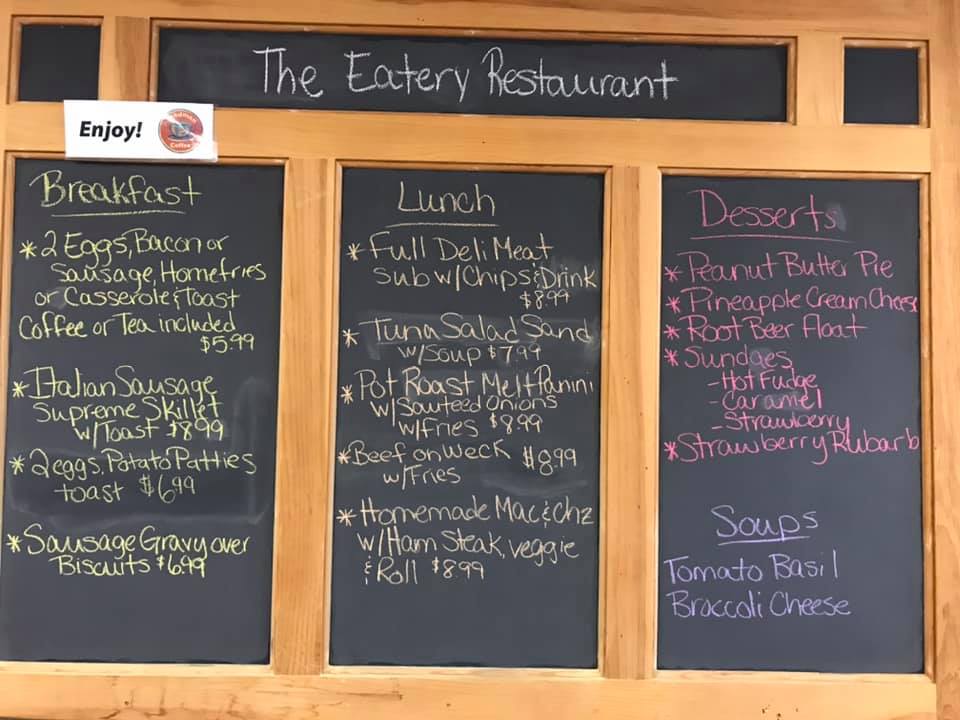 The Eatery Restaurant
Enjoy!
Coffee
Breakfast
* 2 Eggs, Bacon or
Sausage, Homefries
or Casserole & Toast
Coffee or Tea included
$5.99
* Italian Sausage
Supreme Skillet
w/Toast $8.99
* 2 eggs, Potato Patties
toast $6.99
* Sausage Gravy over
Biscuits $6.99
Lunch
* Full Deli Meat
sub w/Chips & Drink
$8.99
* Tuna Salad Sand
w/Soup $7.99
* Pot Roast Melt Panini
w/Sauteed onions
w/Fries $8.99
* Beef on Weck $8.99
w/Fries
* Homemade Mac & Chz
w/Ham Steak, veggie
& Roll $8.99
Desserts
* Peanut Butter Pie
* Pineapple Cream Cheese
* Root Beer Float
* Sundaes
- Hot Fudge
- Caramel
- Strawberry
* Strawberry Rubarb
Soups
Tomato Basil
Broccoli Cheese